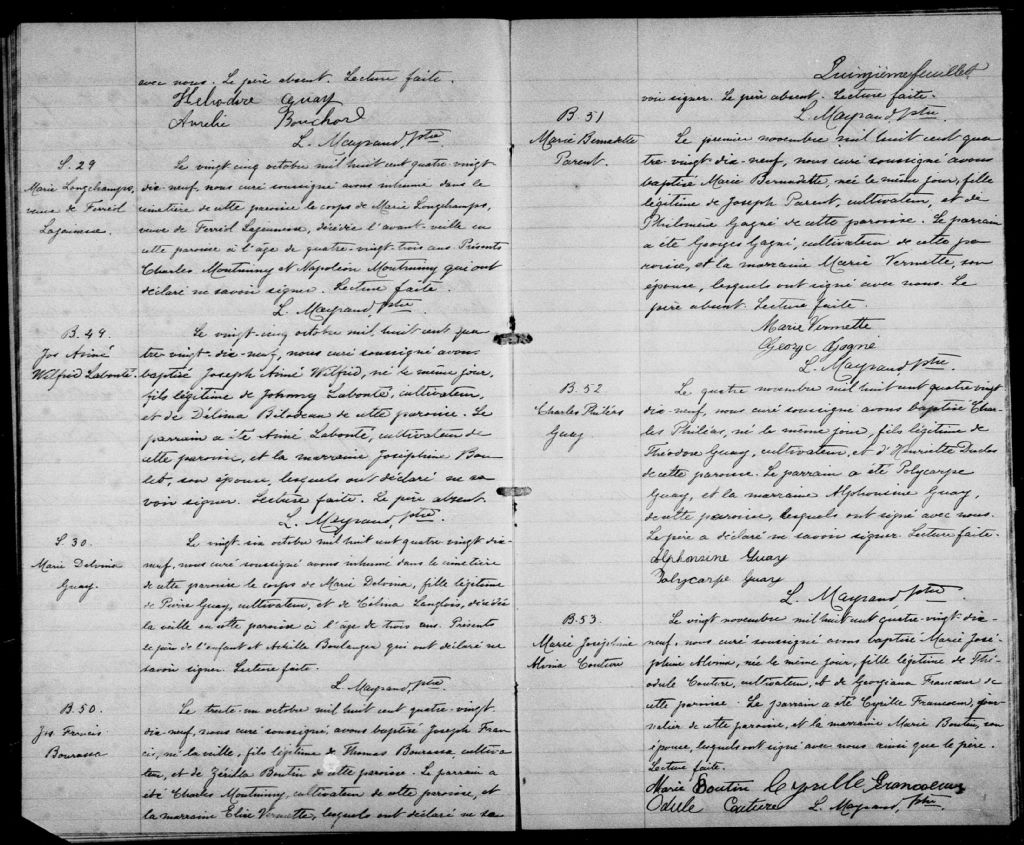 avec nous. Le père absent. Lecture faite.
Héliodore Guay
Aurélie Bouchard
L. Mayrand, ptre
S. 29
Marie Longchamps,
veuve de Ferréol
Lajeunesse.
Le vingt cinq octobre mil huit cent quatre vingt
dix-neuf, nous curé soussigné avons inhumé dans le
cimetière de cette paroisse le corps de Marie Longchamps,
veuve de Ferréol Lajeunesse, décédée l'avant-veille en
cette paroisse à l'âge de quatre-vingt-trois ans. Présents
Charles Montminy et Napoléon Montminy qui ont
déclaré ne savoir signer. Lecture faite.
L. Mayrand, ptre
B. 49
Jos Aimé
Wilfrid Labonté.
Le vingt-cinq octobre mil huit cent qua-
tre-vingt-dix-neuf, nous curé soussigné avons
baptisé Joseph Aimé Wilfrid, né le même jour,
fils légitime de Johnny Labonté, cultivateur,
et de Délima Bilodeau de cette paroisse. Le
parrain a été Aimé Labonté, cultivateur de
cette paroisse, et la marraine Joséphine Bou-
let, son épouse, lesquels ont déclaré ne sa-
voir signer. Lecture faite. Le père absent.
L. Mayrand, ptre
S. 30.
Marie Delvina
Guay.
Le vingt-six octobre mil huit cent quatre vingt dix-
neuf, nous curé soussigné avons inhumé dans le cimetière
de cette paroisse le corps de Marie Delvina, fille légitime
de Pierre Guay, cultivateur, et de Célina Langlois, décédée
la veille en cette paroisse à l'âge de trois ans. Présents
le père de l'enfant et Achille Boulanger qui ont déclaré ne
savoir signer. Lecture faite.
L. Mayrand, ptre
B. 50.
Jos Francis
Bourassa
Le trente-un octobre mil huit cent quatre-vingt
dix-neuf, nous curé soussigné, avons baptisé Joseph Fran-
cis, né la veille, fils légitime de Thomas Bourassa, cultiva-
teur, et de Zérilla Boutin de cette paroisse. Le parrain a
été Charles Montminy, cultivateur de cette paroisse, et
la marraine Elise Vermette, lesquels ont déclaré ne sa-
Quinzième feuillet
voir signer. Le père absent. Lecture faite.
L. Mayrand, ptre.
B. 51
Marie Bernadette
Parent.
Le premier novembre mil huit cent qua-
tre-vingt-dix-neuf, nous curé soussigné avons
baptisé Marie Bernadette, née le même jour, fille
légitime de Joseph Parent, cultivateur, et de
Philomène Gagné de cette paroisse. Le parrain
a été Georges Gagné, cultivateur de cette pa-
roisse, et la marraine Marie Vermette, son
épouse, lesquels ont signé avec nous. Le
père absent. Lecture faite.
Marie Vermette
George Gagné
L. Mayrand, ptre.
B. 52
Charles Philéas
Guay
Le quatre novembre mil huit cent quatre vingt
dix-neuf, nous curé soussigné avons baptisé Char-
les Philéas, né le même jour, fils légitime de
Théodore Guay, cultivateur, et d'Henriette Duclos
de cette paroisse. Le parrain a été Polycarpe
Guay, et la marraine Alphonsine Guay,
de cette paroisse, lesquels ont signé avec nous.
Le père a déclaré ne savoir signer. Lecture faite.
Alphonsine Guay
Polycarpe Guay
L. Mayrand, ptre
B. 53
Marie Joséphine
Alvina Couture
Le vingt novembre mil huit cent quatre-vingt dix-
neuf, nous curé soussigné avons baptisé Marie José-
phine Alvina, née le même jour, fille légitime de Thé-
odule Couture, cultivateur, et de Georgiana Francoeur de
cette paroisse. Le parrain a été Cyrille Francoeur, jour-
nalier de cette paroisse, et la marraine Marie Boutin, son
épouse, lesquels ont signé avec nous ainsi que le père.
Lecture faite.
Marie Boutin Cyrille Francoeur
Odule Couture L. Mayrand, ptre